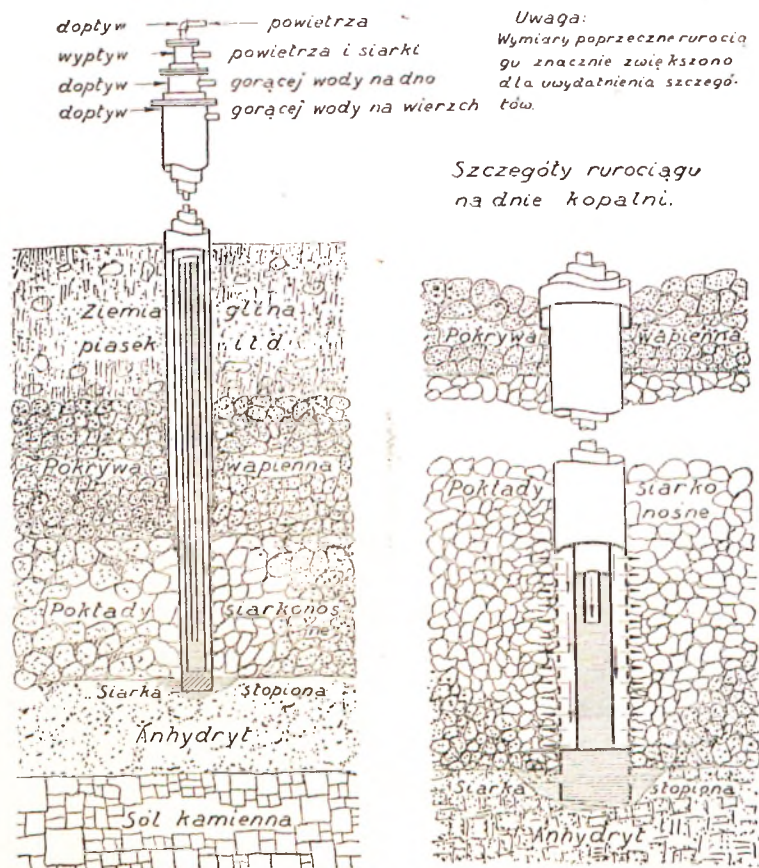 dopływ powietrza
wypływ powietrza i siarki
dopływ gorącej wody na dno
dopływ gorącej wody na wierzch
Uwaga:
Wymiary poprzeczne rurocią
gu znacznie zwiększono
dla uwydatnienia szczegó-
łów.
Szczegóły rurociągu
na dnie kopalni.
Ziemia glina
piasek i t. d.
Pokrywa wapienna
Pokłady siarkonoś
ne
Siarka stopiona
Anhydryt
Sól kamienna
Pokrywa wapienna
Pokłady siarko
nośne
Siarka stopiona
Anhydryt